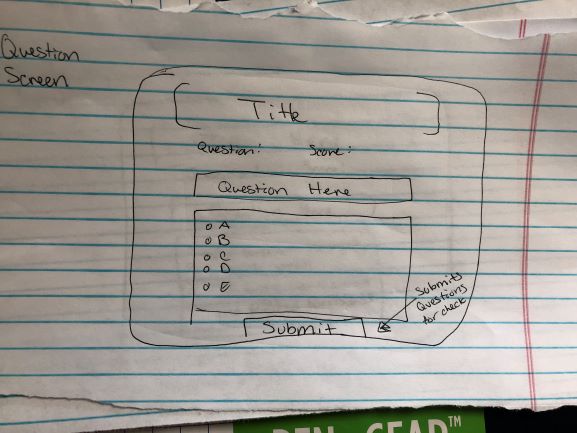 Question
Screen
Title
Question: Score:
Question Here
A
B
C
D
E
Submits
Questions
for check
Submit
GEAR™